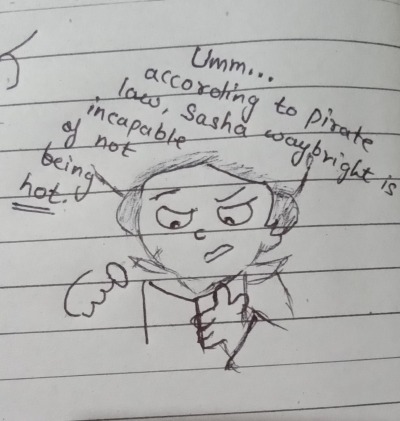 Umm...
according to pirate
law, Sasha waybright is
incapable
of not
being
hot.